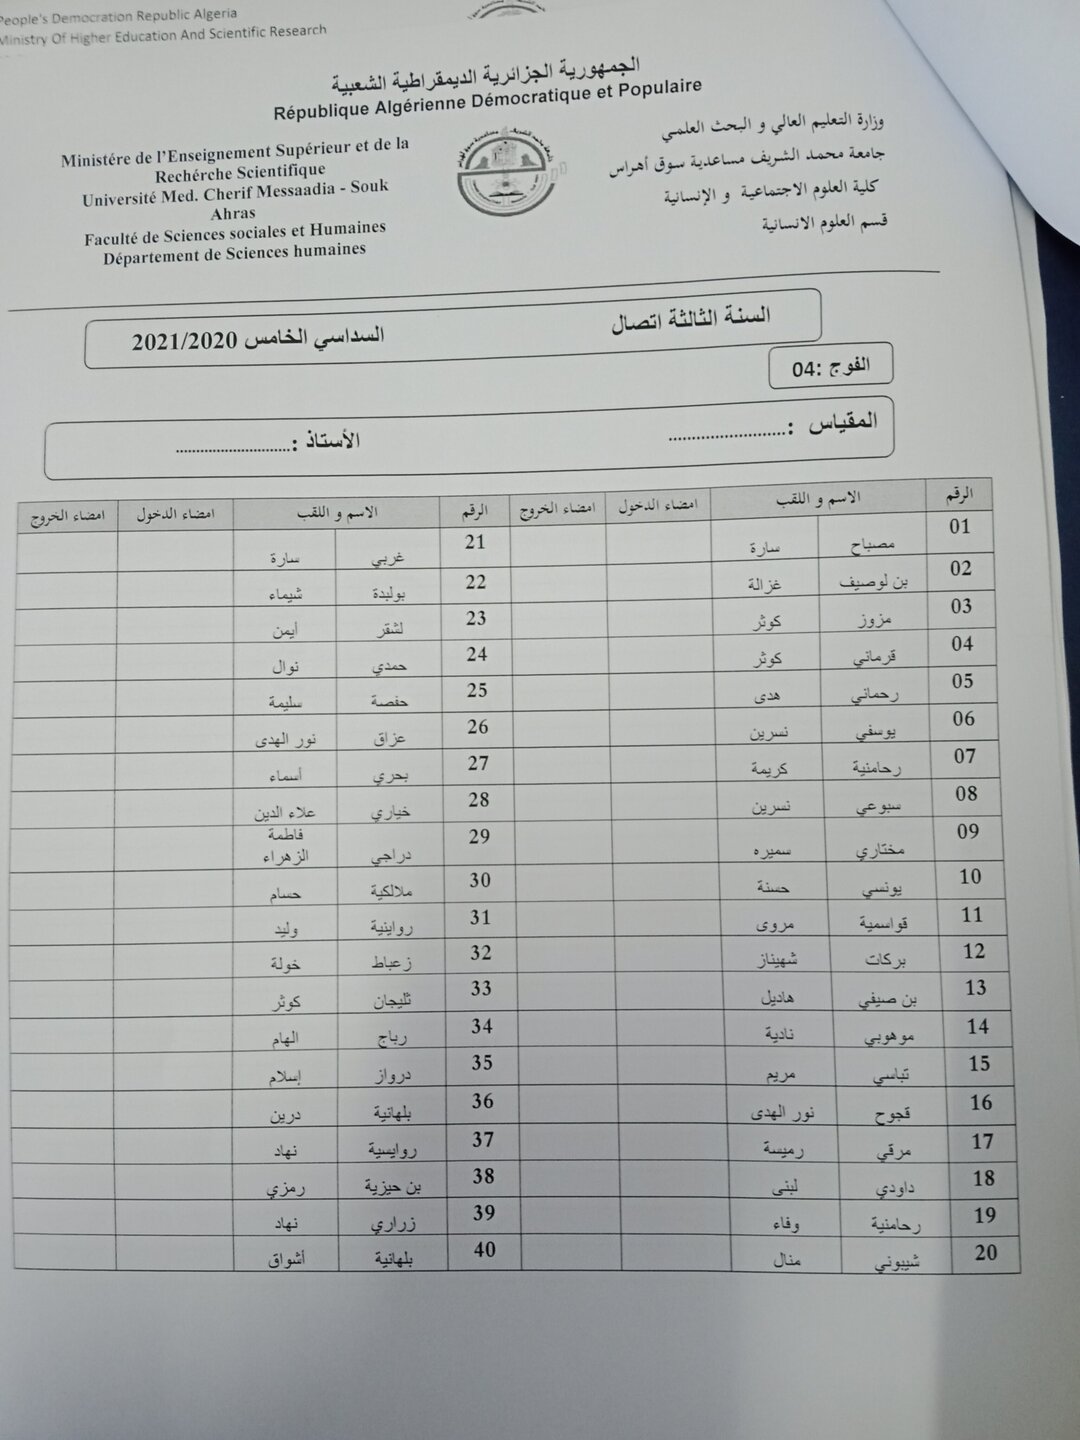 People's Democration Republic Algeria
Ministry Of Higher Education And Scientific Research
الجمهورية الجزائرية الديمقراطية الشعبية
République Algérienne Démocratique et Populaire
وزارة التعليم العالي و البحث العلمي
جامعة محمد الشريف مساعدية سوق أهراس
كلية العلوم الاجتماعية و الإنسانية
قسم العلوم الانسانية
Ministére de l'Enseignement Supérieur et de la
Recherche Scientifique
Université Med. Cherif Messaadia - Souk
Ahras
Faculté de Sciences sociales et Humaines
Département de Sciences humaines
السنة الثالثة اتصال السداسي الخامس 2021/2020
الفوج :04
المقياس :......................... الأستاذ :............................
الرقم الاسم و اللقب امضاء الدخول امضاء الخروج الرقم الاسم و اللقب امضاء الدخول امضاء الخروج
01 مصباح سارة 21 غربي سارة
02 بن لوصيف غزالة 22 بولبدة شيماء
03 مزوز كوثر 23 لشقر أيمن
04 قرماني كوثر 24 حمدي نوال
05 رحماني هدى 25 حفصة سليمة
06 يوسفي نسرين 26 عزاق نور الهدى
07 رحامنية كريمة 27 بحري أسماء
08 سبوعي نسرين 28 خياري علاء الدين
09 مختاري سميره 29 دراجي فاطمة الزهراء
10 يونسي حسنة 30 ملالكية حسام
11 قواسمية مروى 31 رواينية وليد
12 بركات شهيناز 32 زعباط خولة
13 بن صيفي هاديل 33 ثليجان كوثر
14 موهوبي نادية 34 رباج الهام
15 تباسي مريم 35 درواز إسلام
16 قجوح نور الهدى 36 بلهانية درين
17 مرقي رميسة 37 روايسية نهاد
18 داودي لبنى 38 بن حيزية رمزي
19 رحامنية وفاء 39 زراري نهاد
20 شيبوني منال 40 بلهانية أشواق